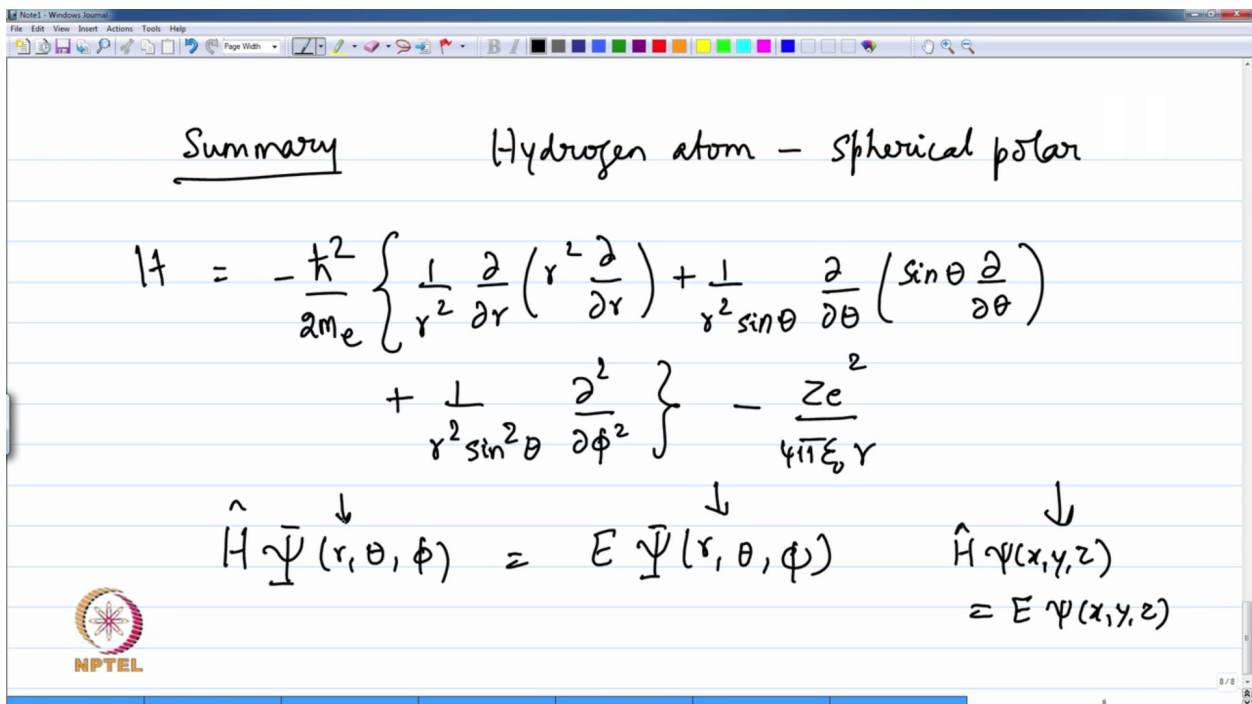 Note1 - Windows Journal
File Edit View Insert Actions Tools Help
Page Width
B I
Summary Hydrogen atom – Spherical polar
H = - ħ²/2mₑ { 1/r² ∂/∂r ( r² ∂/∂r ) + 1/r² sin θ ∂/∂θ ( sin θ ∂/∂θ )
+ 1/r² sin² θ ∂²/∂φ² } – Ze²/4πε₀ r
↓ ↓ ↓
Ĥ Ψ (r, θ, φ) = E Ψ (r, θ, φ) Ĥ ψ(x,y,z)
= E ψ(x,y,z)
NPTEL
8/8